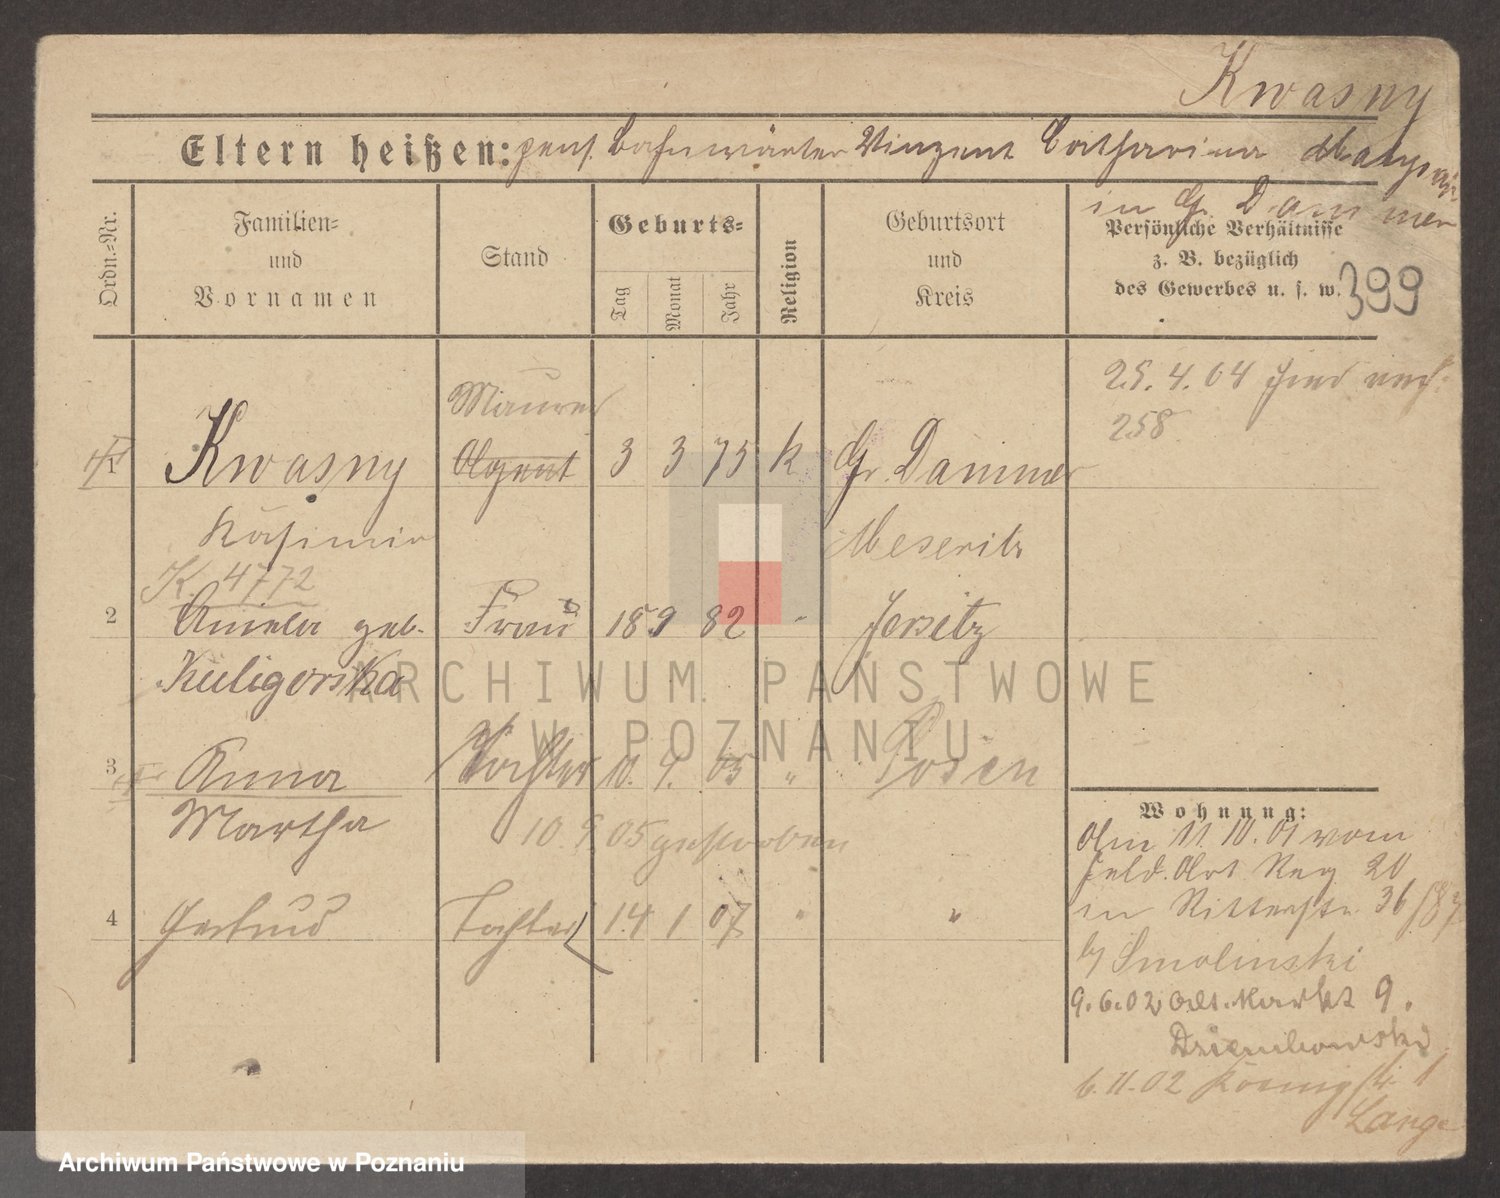 Kwasny
Eltern heißen: pens. Bahnwärter Vinzent Catharina
in Gr. Dammer
Ordn.-Nr.
Familien-
und
Vornamen
Stand
Geburts-
Tag
Monat
Jahr
Religion
Geburtsort
und
Kreis
Persönliche Verhältnisse
z. B. bezüglich
des Gewerbes u. s. w.
399
25. 4. 04
258
Maurer
1 Kwasny Agent 3 3 75 k Gr. Dammer
Kasimir Meseritz
K. 4772
2 Aniela geb. Frau 18 9 82 " Jersitz
Kuligorska
3 Anna Tochter 10. 9. 05 " Posen
Martha
10. 9. 05 gestorben
4 Gertrud Tochter 14 1 07 " "
Wohnung:
Am 11. 10. 01 vom
Feld. Art Reg 20
in Ritterstr. 36
by Smolinski
9. 6. 02 Alt. Markt 9.
Dziembowski
6. 11. 02 Königstr 1
Lange
ARCHIWUM PAŃSTWOWE
W POZNANIU
Archiwum Państwowe w Poznaniu